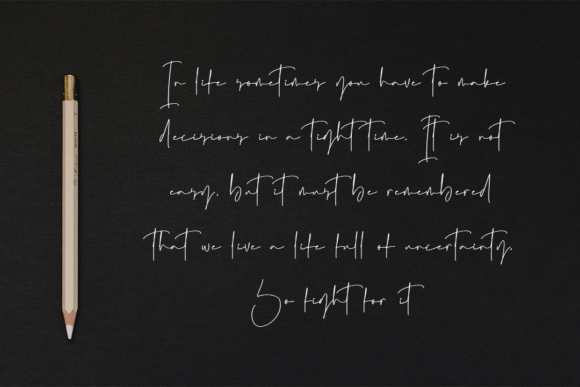 In life sometimes you have to make
decisions in a tight time. It is not
easy. but it must be remembered
that we live a life full of uncertainty.
So fight for it